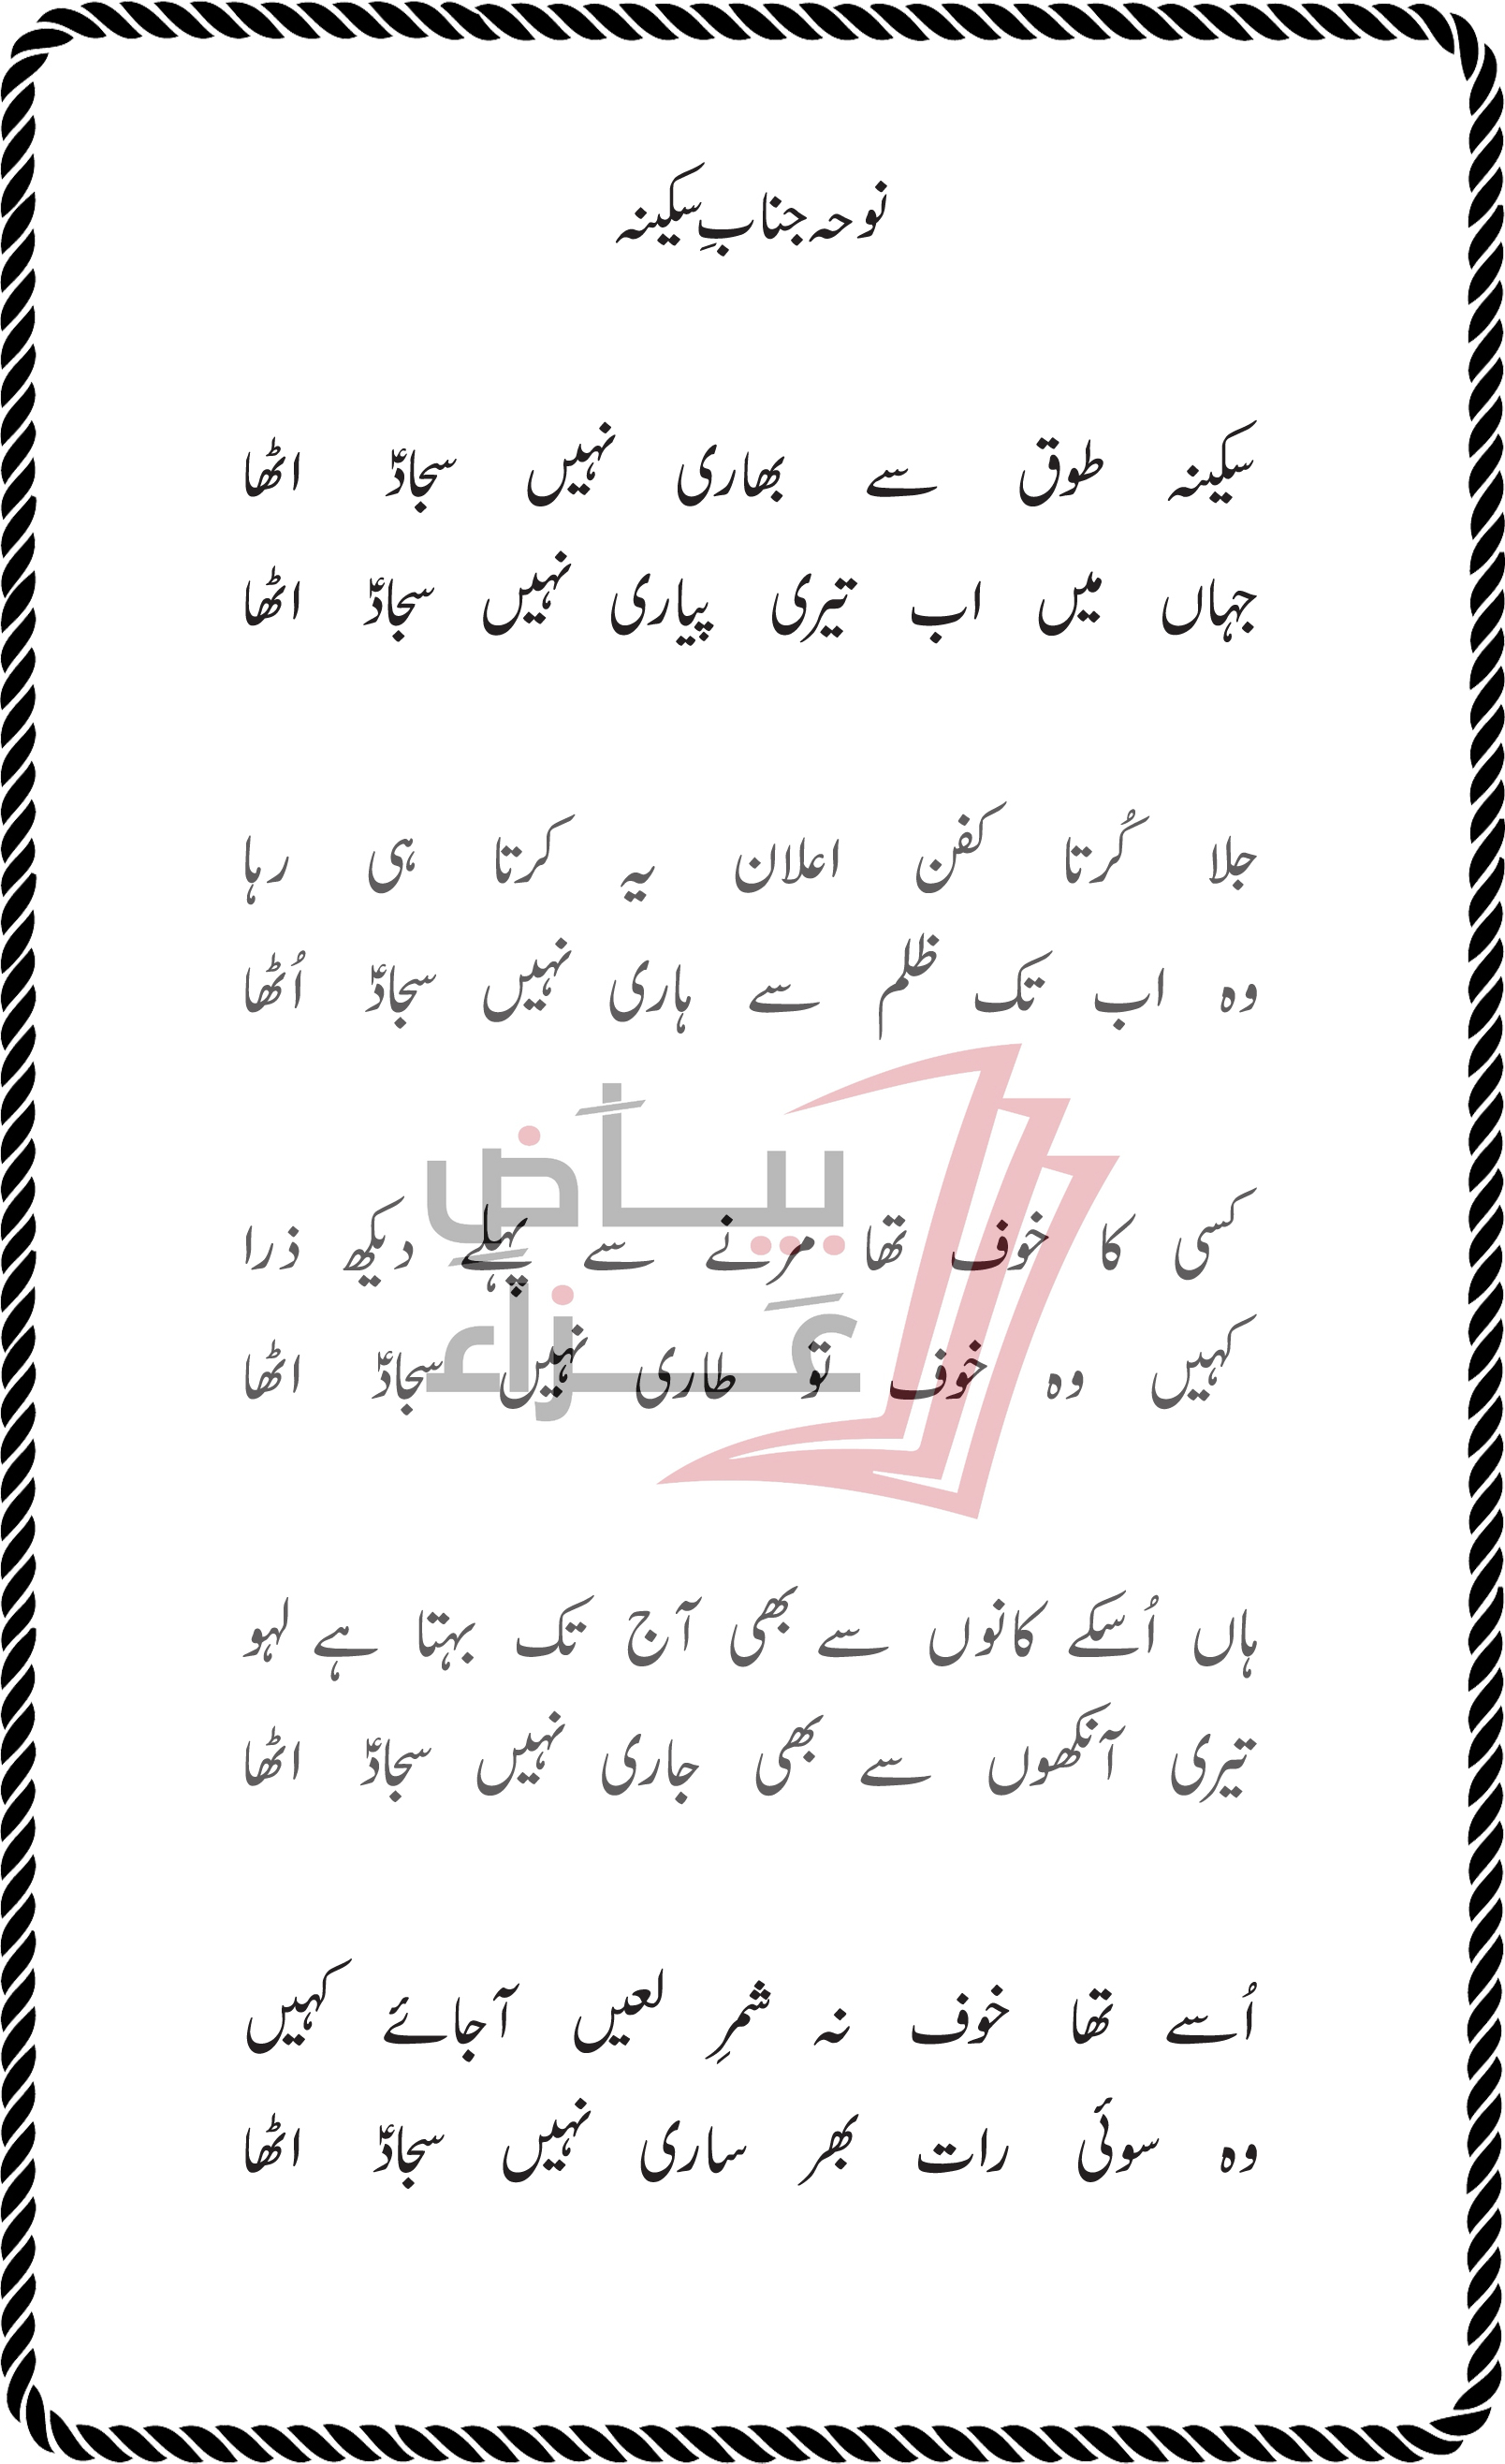 نوحہ جنابِ سکینہ
سکینہ طوق سے بھاری نہیں سجادؑ اٹھا
جہاں میں اب تیری پیاری نہیں سجادؑ اٹھا
جلا کُرتا کفن اعلان یہ کرتا ہی رہا
وہ اب تک ظلم سے ہاری نہیں سجادؑ اُٹھا
کسی کا خوف تھا مرنے سے پہلے دیکھ ذرا
کہیں وہ خوف تو طاری نہیں سجادؑ اٹھا
ہاں اُسکے کانوں سے بھی آج تک بہتا ہے لہو
تیری آنکھوں سے بھی جاری نہیں سجادؑ اٹھا
اُسے تھا خوف نہ شمرِ لعیں آجائے کہیں
وہ سوئی رات بھر ساری نہیں سجادؑ اٹھا
بیاض
عزاء